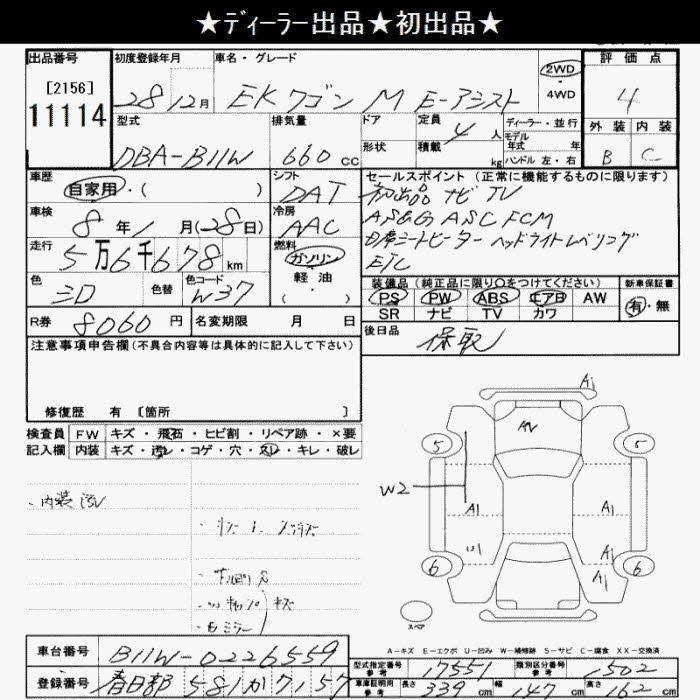 ★ディーラー出品★初出品★
出品番号
[2156]
11114
初度登録年月
28 12月
車名・グレード
EKワゴン M E-アシスト
2WD
・
4WD
評価点
4
外装 内装
B C
型式
DBA-B11W
排気量
660cc
ドア
形状
定員 4 人
積載 kg
ディーラー・並行
モデル
年式 年
ハンドル 左・右
車歴
自家用・( )
シフト
DAT
セールスポイント (正常に機能するものに限ります)
初出品 ナビ TV
ASG ASC FCM
D席シートヒーター ヘッドライトレベリング
ETC
車検
8年1月(28日)
冷房
AAC
走行
5万6千678km
燃料
ガソリン
・
軽・油
( )
色
シロ
色替
色コード
W37
装備品 (純正品に限り○をつけてください)
PS PW ABS エアB AW
SR ナビ TV カワ
新車保証書
有・無
R券 8060円
名変期限 月 日
後日品
保取
注意事項申告欄(不具合内容等は具体的に記入して下さい)
修復歴 有 〔箇所 〕
検査員 FW キズ・飛石・ヒビ割・リペア跡・×要
記入欄 内装 キズ・汚レ・コゲ・穴・スレ・キレ・破レ
・内装汚レ
・下廻りS
・モミラー
A1
AV
5
5
W2
A1
A1
A1
A1
6
6
スペア
A-キズ E-エクボ U-凹み W-補修跡 S-サビ C-腐食 XX-交換済
車台番号 B11W-0226559
登録番号 春日部 581か7157
型式指定番号
参考
17551
類別区分番号
参考
1502
車庫証明用
参考
長さ 339cm 幅 147cm 高さ 162cm